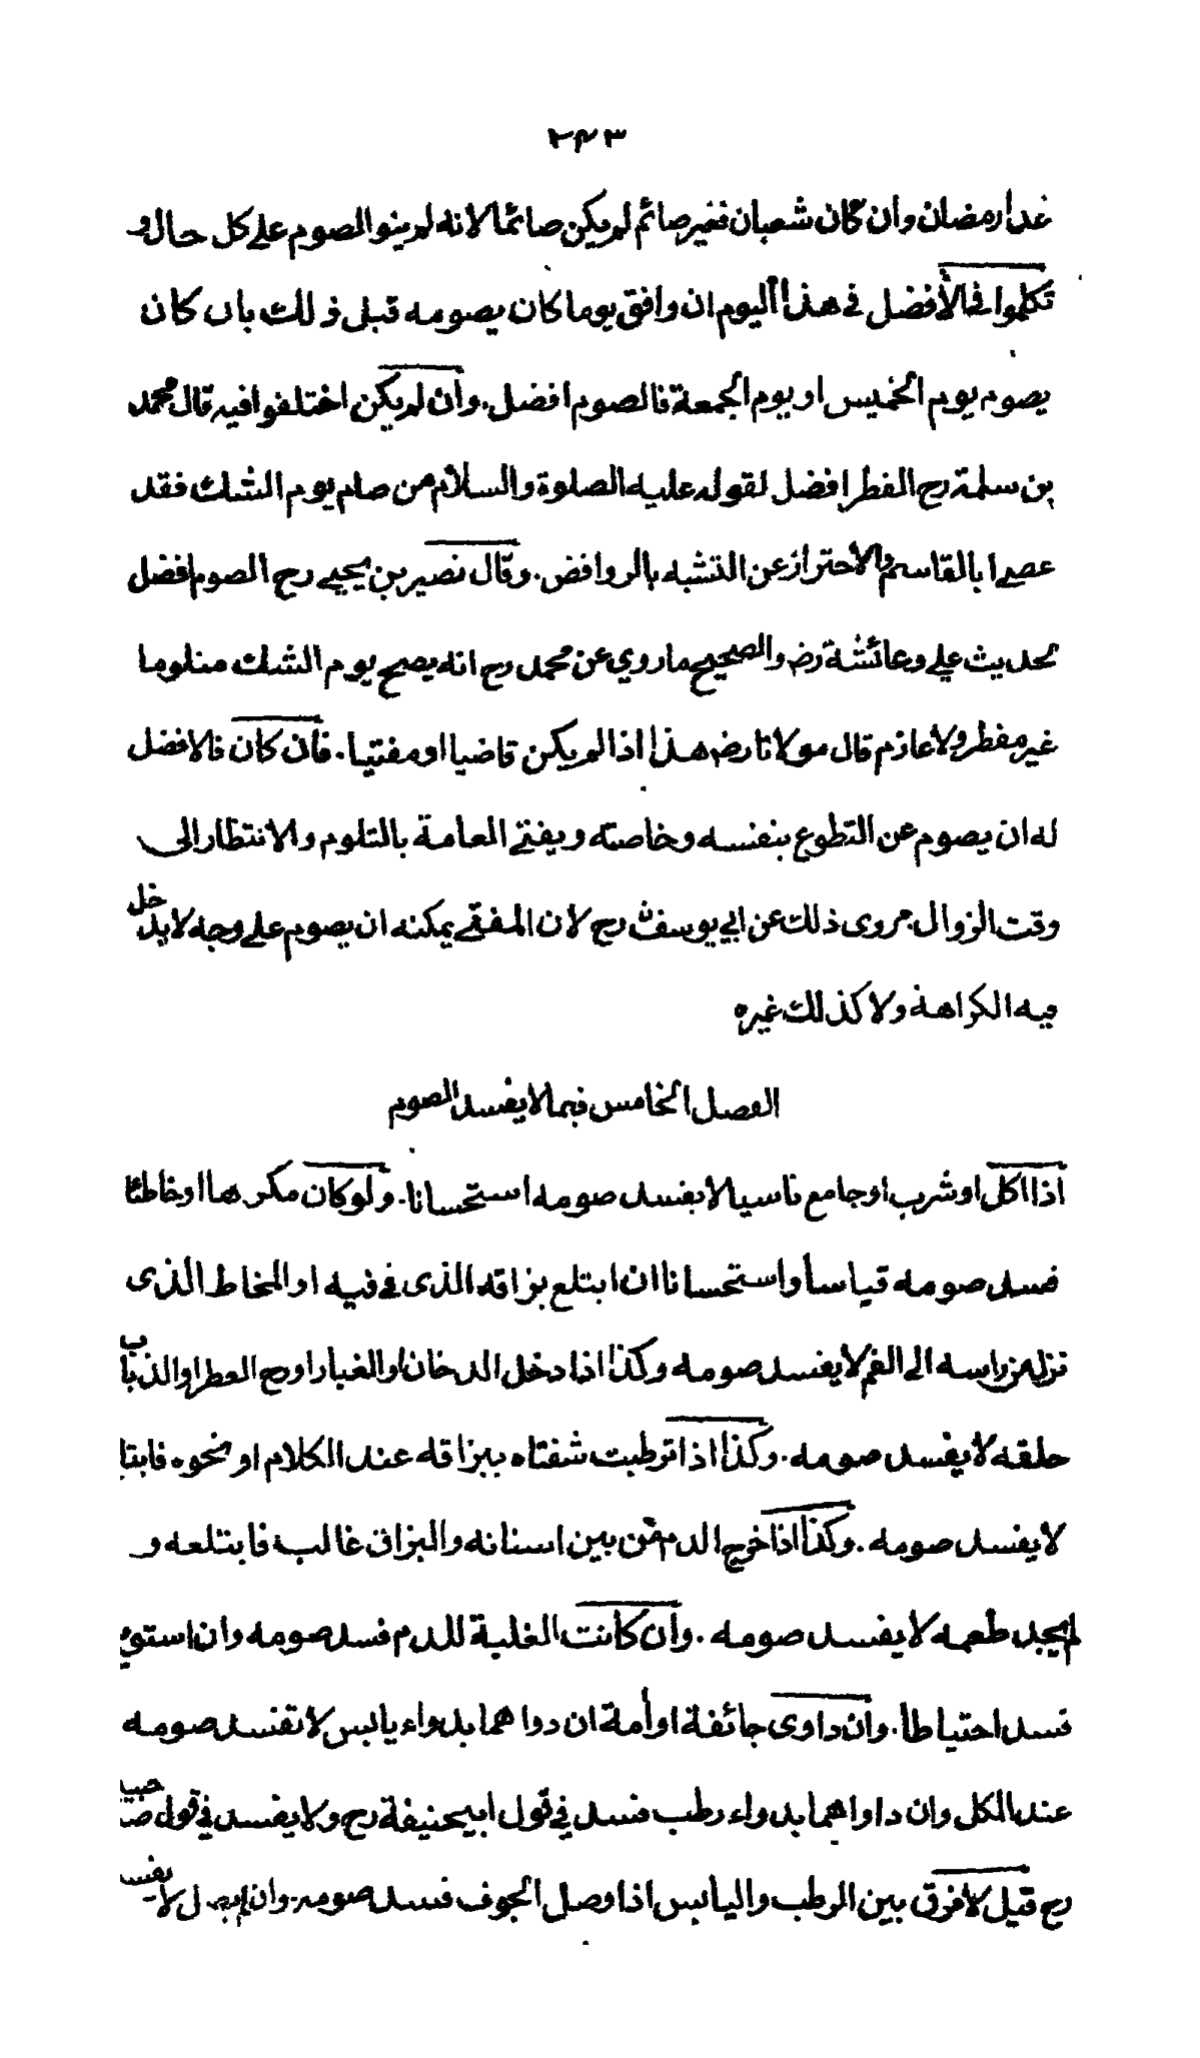 ٢٤٣
غدا رمضان وان كان شعبان فغير صائم لم يكن صائما لانه لم ينو الصوم على كل حال و
تكلموا في الأفضل في هذا اليوم ان وافق يوما كان يصومه قبل ذلك بان كان
يصوم يوم الخميس او يوم الجمعة فالصوم افضل . وان لم يكن اختلفوا فيه قال محمد
بن سلمة رح الفطر افضل لقوله عليه الصلوة والسلام من صام يوم الشك فقد
عصى ابا القاسم والاحتراز عن التشبه بالروافض . وقال نصير بن يحيى رح الصوم افضل
لحديث علي وعائشة رض والصحيح ما روي عن محمد رح انه يصبح يوم الشك متلوما
غير مفطر ولا عازم قال مولانا رض هذا اذا لم يكن قاضيا او مفتيا . فان كان فالافضل
له ان يصوم عن التطوع بنفسه وخاصته ويفتى العامة بالتلوم والانتظار الى
وقت الزوال مروى ذلك عن ابي يوسف رح لان المفتى يمكنه ان يصوم على وجه لا يدخل
فيه الكراهة ولا كذلك غيره
الفصل الخامس فيما لا يفسد الصوم
اذا اكل او شرب او جامع ناسيا لا يفسد صومه استحسانا . ولو كان مكرها او خاطئا
فسد صومه قياسا واستحسانا ان ابتلع بزاقه الذى فى فيه او المخاط الذى
نزل من راسه الى الفم لا يفسد صومه وكذا اذا دخل الدخان او الغبار او ريح العطر او الذباب
حلقه لا يفسد صومه . وكذا اذا ترطبت شفتاه ببزاقه عند الكلام او نحوه فابتلع
لا يفسد صومه . وكذا اذا خرج الدم من بين اسنانه والبزاق غالب فابتلعه و
لم يجد طعمه لا يفسد صومه . وان كانت الغلبة للدم فسد صومه وان استوى
فسد احتياطا . وان داوى جائفة او أمة ان دواهما بدواء يابس لا تفسد صومه
عند الكل وان داواهما بدواء رطب فسد في قول ابيحنيفة رح ولا يفسد في قول
رح قيل لا فرق بين الرطب واليابس اذا وصل الجوف فسد صومه . وان لم يصل لا يفسد